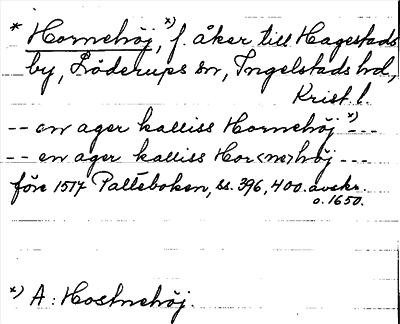 * Hornehöj, *) f. åker till Hagestads
by, Löderups sn, Ingelstads hd,
Krist. l.
-- en ager kalliss Hornehöj *) ---
-- en ager kalliss Hor<ne>höj ---
före 1517 Palteboken, ss. 396, 400. avskr.
o. 1650.
*) A: Hoshnehöj.